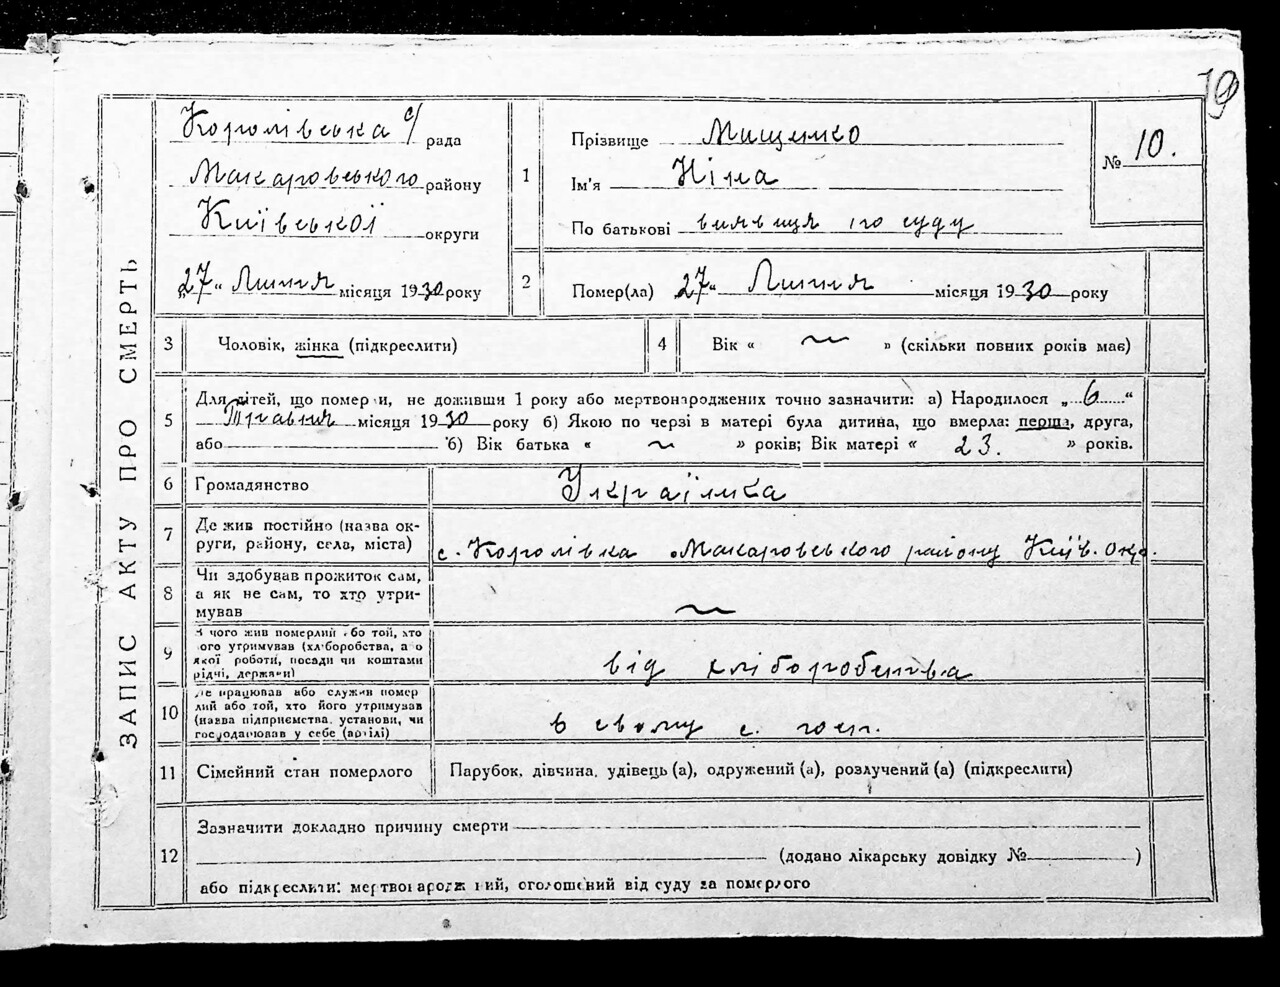 19
ЗАПИС АКТУ ПРО СМЕРТЬ
Королівська с/рада
Макаровського району
Київської округи
„27“ Липня місяця 1930 року
1
Прізвище Мищенко
Ім'я Ніна
По батькові вищя по суду
№ 10.
2
Помер(ла) „27“ Липня місяця 1930 року
3
Чоловік, жінка (підкреслити)
4
Вік « ~ » (скільки повних років має)
5
Для дітей, що померли, не доживши 1 року або мертвонароджених точно зазначити: а) Народилося „6“
Травня місяця 1930 року б) Якою по черзі в матері була дитина, що вмерла: перша, друга,
або б) Вік батька « ~ » років; Вік матері « 23. » років.
6
Громадянство
Українка
7
Де жив постійно (назва округи, району, села, міста)
с. Королівка Макаровського району Київ. окр.
8
Чи здобував прожиток сам,
а як не сам, то хто утримував
~
9
З чого жив померлий або той, хто
його утримував (хліборобства, а о
якої роботи, посади чи коштами
рідчі, держави)
від хліборобства
10
Де працював або служив помер
лий або той, хто його утримував
(назва підприємства, установи, чи
господарював у себе (артілі)
в свому с. госп.
11
Сімейний стан померлого
Парубок, дівчина, удівець (а), одружений (а), розлучений (а) (підкреслити)
12
Зазначити докладно причину смерти
(додано лікарську довідку № )
або підкреслити: мертвонароджений, оголошений від суду за померлого